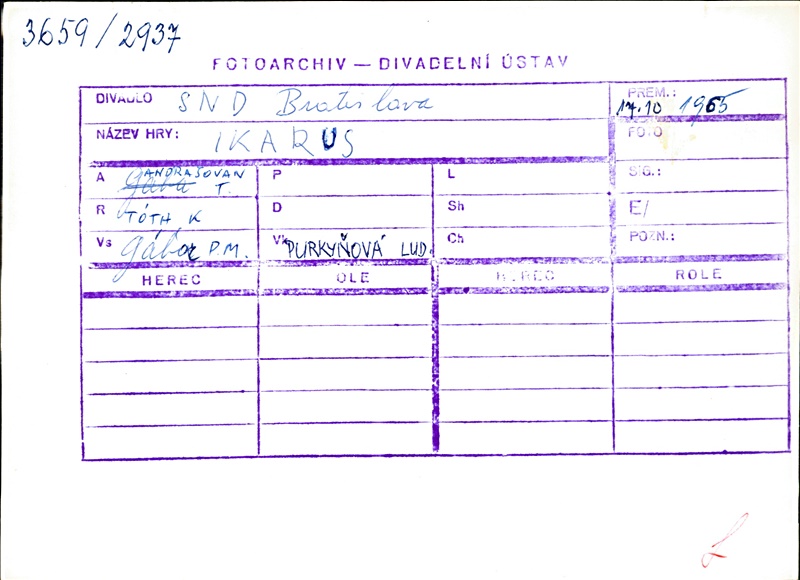 3659/2937
FOTOARCHIV — DIVADELNÍ ÚSTAV
DIVADLO SND Bratislava
PREM.: 17.10 1965
NÁZEV HRY: IKARUS
FOTO
A ANDRAŠOVAN T.
P
L
SIG.:
R TÓTH K
D
Sh
E/
Vs Gábor P.M.
Vk PURKYŇOVÁ LUD.
Ch
POZN.:
HEREC
OLE
HEREC
ROLE